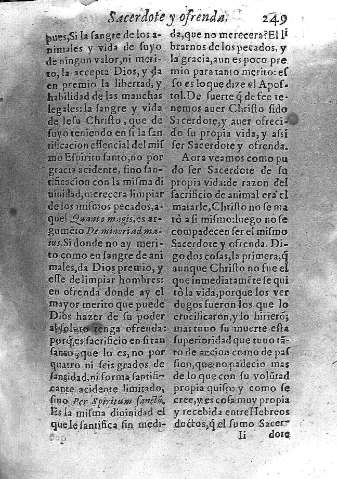 Sacerdote y ofrenda. 249
pues, Si la sangre de los a-
nimales y vida de suyo
de ningun valor, ni meri-
to, la accepta Dios, y da
en premio la libertad, y
habilidad de las manchas
legales: la sangre y vida
de Iesu Christo, que de
suyo teniendo en si la san
tificacion essencial del mis
mo Espiritu santo, no por
gracia accidente, sino san-
tificacion con la misma di
uinidad, merecera limpiar
de los mismos pecados, a-
quel Quanto magis, es ar-
gumẽto De minori ad ma-
ius. Si donde no ay meri-
to como en sangre de ani-
males, da Dios premio, y
esse de limpiar hombres:
en ofrenda donde ay el
mayor merito que puede
Dios hazer de su poder
absoluto tenga ofrenda:
porq̃ es sacrificio en si tan
santo, que lo es, no por
quatro ni seis grados de
santidad, ni forma santifi-
cante accidente limitado,
sino Per Spiritum sanctũ.
Es la misma diuinidad el
que le santifica sin medi-
da, que no merecera? El li
brarnos de los pecados, y
la gracia, aun es poco pre
mio para tanto merito: es
so es lo que dize el Apos-
tol. De suerte q̃ de fee te-
nemos auer Christo sido
Sacerdote, y auer ofreci-
do su propia vida, y assi
ser Sacerdote y ofrenda.
Aora veamos como pu
do ser Sacerdote de su
propia vida: de razon del
sacrificio de animal era el
matarle, Christo no se ma
tò a si mismo: luego no se
compadecen ser el mismo
Sacerdote y ofrenda. Di-
go dos cosas, la primera, q̃
aunque Christo no fue el
que inmediatamẽte se qui
to la vida, porque los ver
dugos fueron los que lo
crucificaron, y lo hiriero̅;
mas tuuo su muerte essa
superioridad que tuuo ra-
to de accion como de pas
sion, que no padecio mas
de lo que con su volũtad
propia quiso y como se
cree, y es cosa muy propia
y recebida entre Hebreos
doctos, q̃ el sumo Sacer-
Ii dote